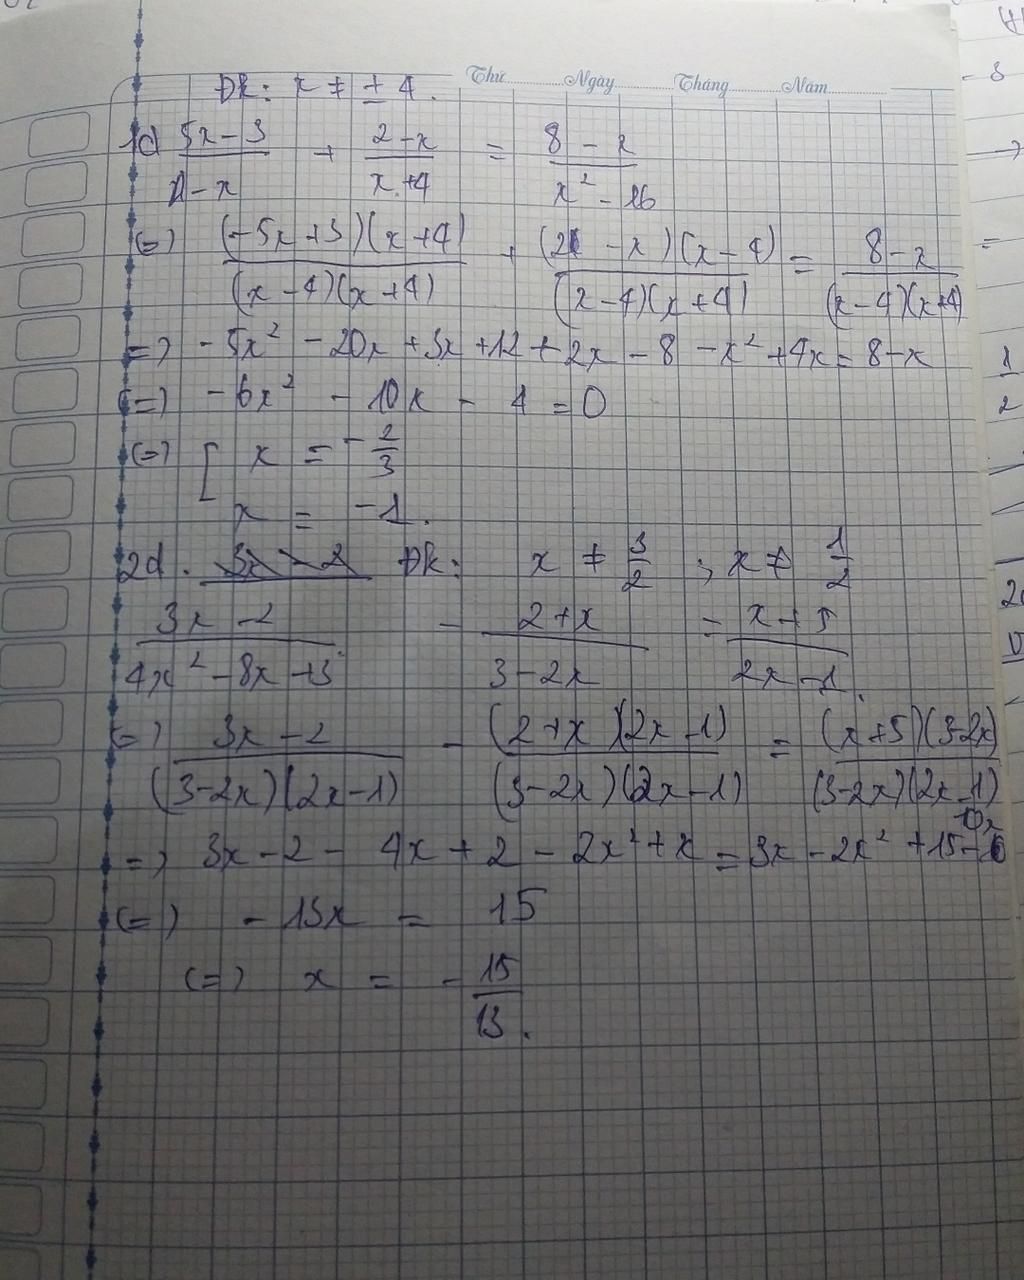 Thứ Ngày Tháng Năm
Đk: x ≠ ± 4.
1d (5x - 3)/(4 - x) + (2 - x)/(x + 4) = (8 - x)/(x² - 16)
(=) ((-5x + 3)(x + 4))/((x - 4)(x + 4)) + ((2 - x)(x - 4))/((x - 4)(x + 4)) = (8 - x)/((x - 4)(x + 4))
=) -5x² - 20x + 3x + 12 + 2x - 8 - x² + 4x = 8 - x
(=) -6x² - 10x - 4 = 0
(=) [ x = -2/3
x = -1.
2d. 3x - 2 Đk: x ≠ 3/2 ; x ≠ 1/2
(3x - 2)/(4x² - 8x + 3) - (2 + x)/(3 - 2x) = (x + 5)/(2x - 1).
(=) (3x - 2)/((3 - 2x)(2x - 1)) - ((2 + x)(2x - 1))/((3 - 2x)(2x - 1)) = ((x + 5)(3 - 2x))/((3 - 2x)(2x - 1))
=) 3x - 2 - 4x + 2 - 2x² + x = 3x - 2x² + 15 - 10x
(=) -13x = 15
(=) x = -15/13.